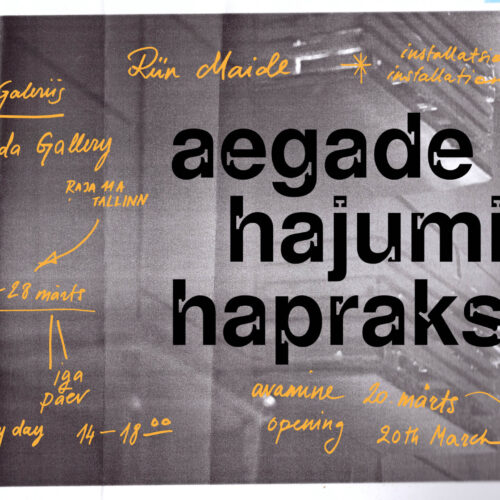 Rün Maide
installatsio
installation
Galeriis
da Gallery
RAJA 11A
TALLINN
aegade
hajumi
hapraks
-28 märts
iga
päev
y day 14-18 00
avamine 20 märts
opening 20th March